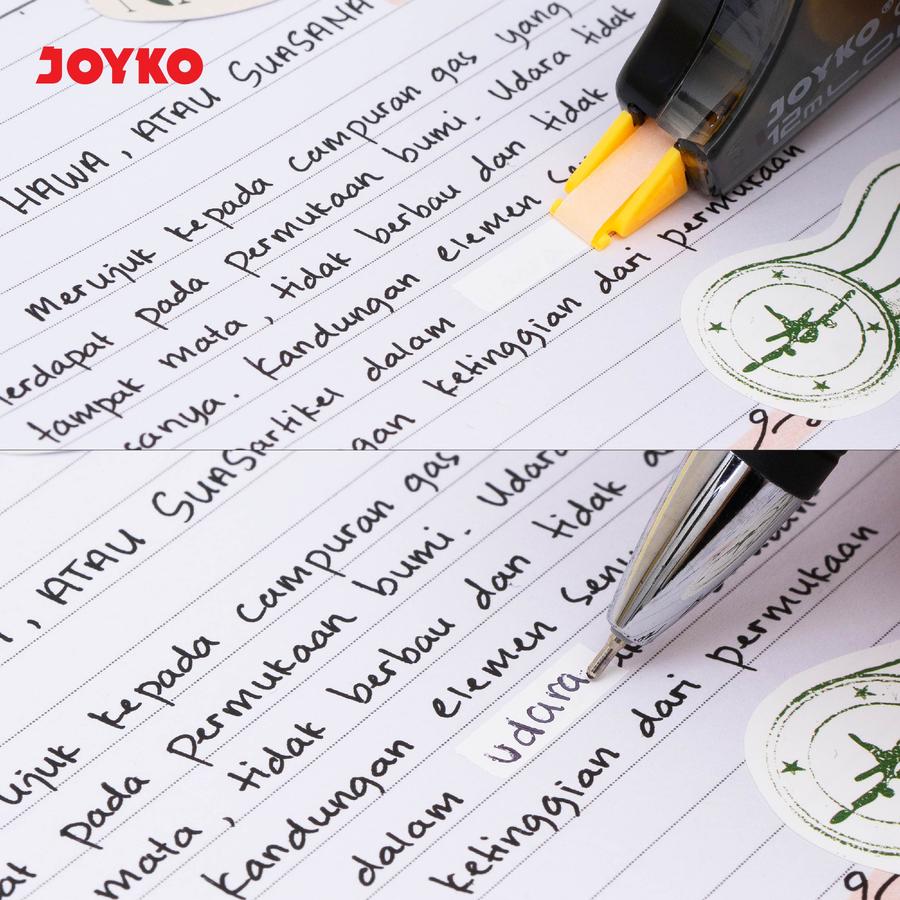 JOYKO
HAWA, ATAU SUASANA
merujuk kepada campuran gas yang
terdapat pada permukaan bumi. Udara tidak
tampak mata, tidak berbau dan tidak
sanya. Kandungan elemen
SUASartikel dalam
gan ketinggian dari permukaan
JOYKO
12m
, ATAU SUAS
ujuk kepada campuran gas
at pada permukaan bumi. Udara
mata, tidak berbau dan tidak
kandungan elemen
dalam udara
ketinggian dari permukaan